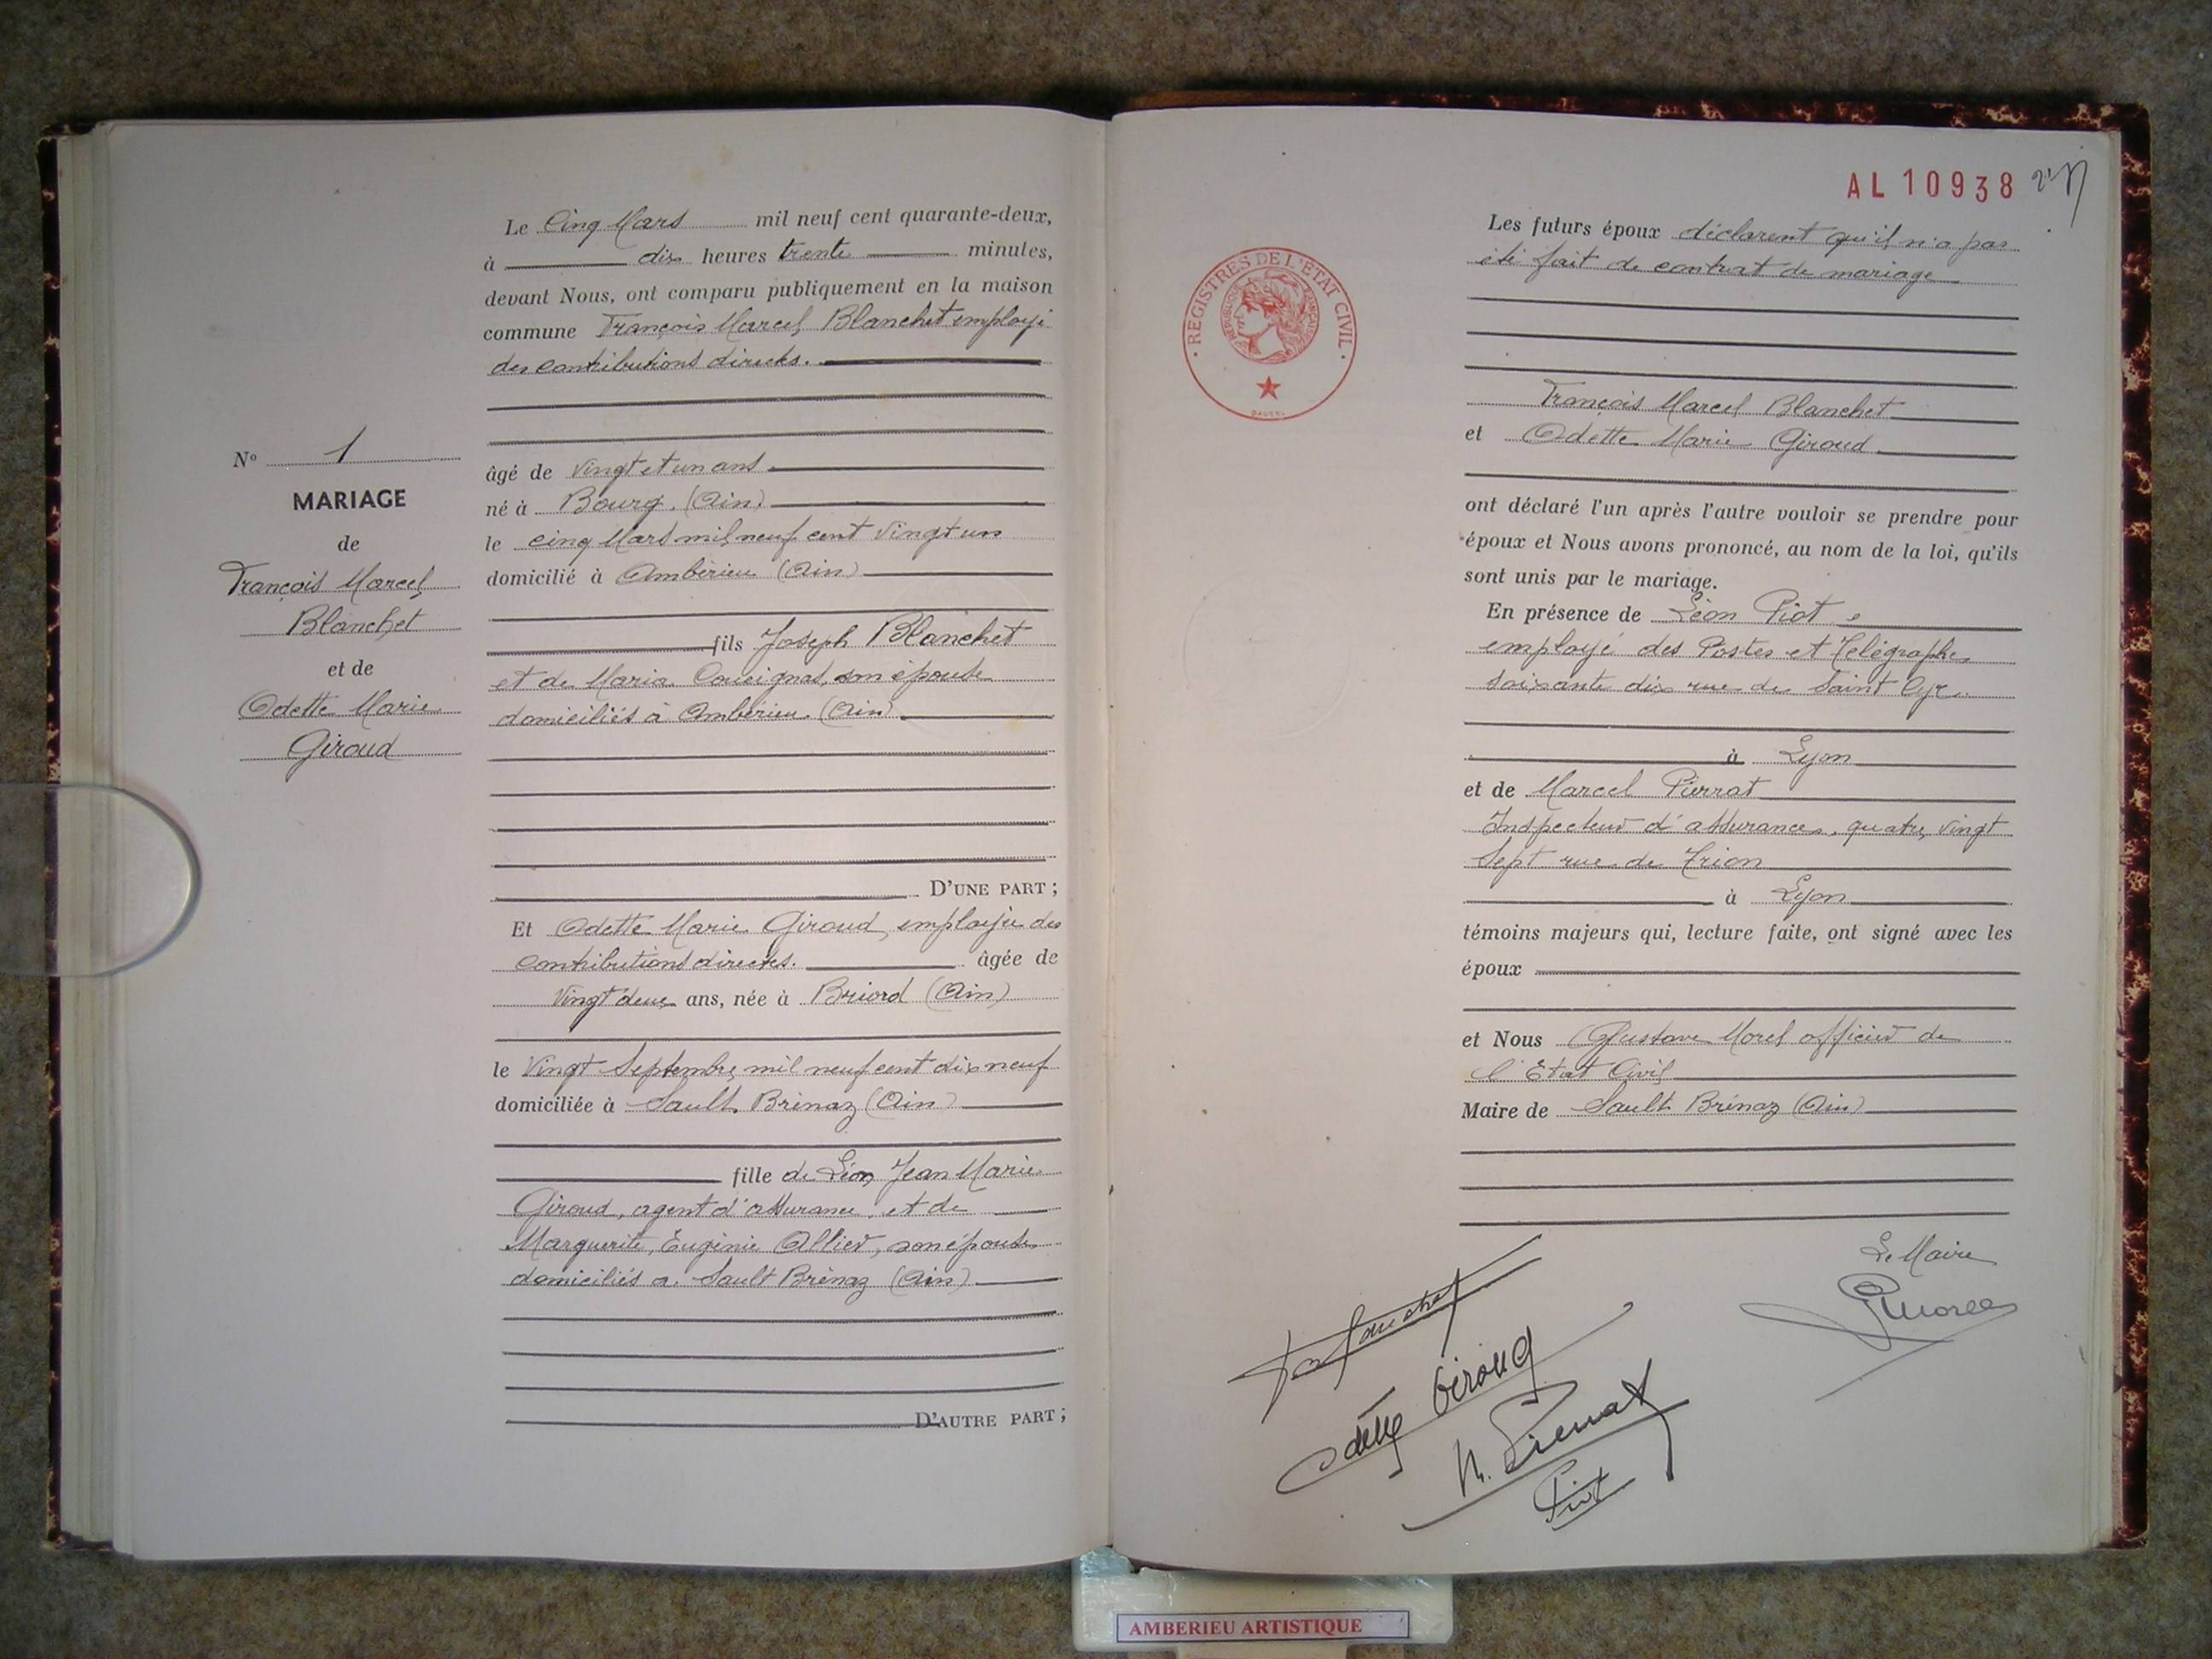 Le Cinq Mars mil neuf cent quarante-deux,
à dix heures trente minutes,
devant Nous, ont comparu publiquement en la maison
commune François Marcel Blanchet employé
des contributions directes.
âgé de vingt et un ans
né à Bourg. (Ain)
le cinq Mars mil neuf cent vingt un
domicilié à Ambérieu (Ain)
fils Joseph Blanchet
et de Maria son épouse
domiciliés à Ambérieu. (Ain)
D'UNE PART ;
Et Odette Marie Giroud, employée des
contributions directes. âgée de
Vingt deux ans, née à Briord (Ain)
le Vingt Septembre mil neuf cent dix neuf
domiciliée à Sault Brénaz (Ain)
fille de Léon Jean Marie
Giroud, agent d'assurance, et de
Marguerite, Eugénie Ollier, son épouse
domiciliés à Sault Brénaz (Ain)
D'AUTRE PART ;
N° 1
MARIAGE
de
François Marcel
Blanchet
et de
Odette Marie
Giroud
AL 10938
REGISTRES DE L'ETAT CIVIL
REPUBLIQUE FRANÇAISE
Les futurs époux déclarent qu'il n'a pas
été fait de contrat de mariage
François Marcel Blanchet
et Odette Marie Giroud
ont déclaré l'un après l'autre vouloir se prendre pour
époux et Nous avons prononcé, au nom de la loi, qu'ils
sont unis par le mariage.
En présence de Léon Piot
employé des Postes et Télégraphes
soixante dix rue de Saint Cyr
à Lyon
et de Marcel Pierrat
Inspecteur d'assurances, quatre vingt
sept rue de Trion
à Lyon
témoins majeurs qui, lecture faite, ont signé avec les
époux
et Nous Gustave Morel officier de
l'Etat Civil
Maire de Sault Brénaz (Ain)
Le Maire
GMorel
Odette Giroud
M. Pierrat
Piot
AMBERIEU ARTISTIQUE